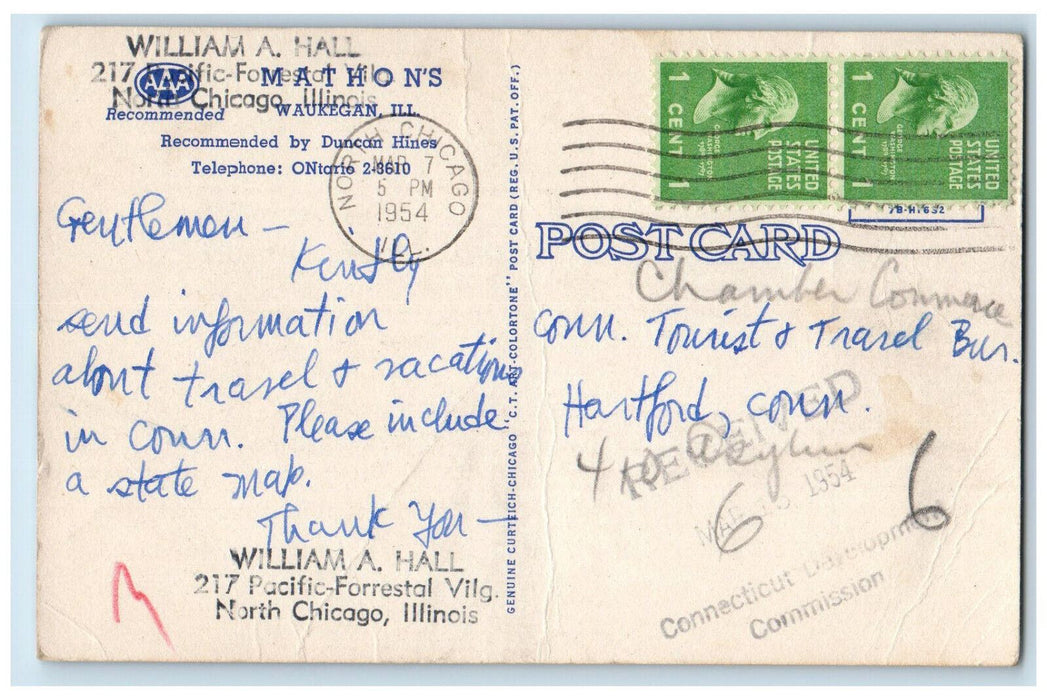 WILLIAM A. HALL
217 Pacific-Forrestal Vilg.
North Chicago, Illinois
AAA
Recommended
MATHON'S
WAUKEGAN, ILL.
Recommended by Duncan Hines
Telephone: ONtario 2-3610
NORTH CHICAGO
MAR 7
5 PM
1954
ILL.
Gentlemen –
Kindly
send information
about travel & vacations
in Conn. Please include
a state map.
Thank You –
WILLIAM A. HALL
217 Pacific-Forrestal Vilg.
North Chicago, Illinois
GENUINE CURTEICH-CHICAGO "C.T. ART-COLORTONE" POST CARD (REG. U.S. PAT. OFF.)
1 CENT 1
GEORGE WASHINGTON
UNITED STATES POSTAGE
1 CENT 1
GEORGE WASHINGTON
UNITED STATES POSTAGE
7B-H1632
POST CARD
Chamber Commerce
Conn. Tourist & Travel Bur.
Hartford, Conn.
Asylum
RECEIVED
MAR 1954
6
6
Connecticut Development
Commission